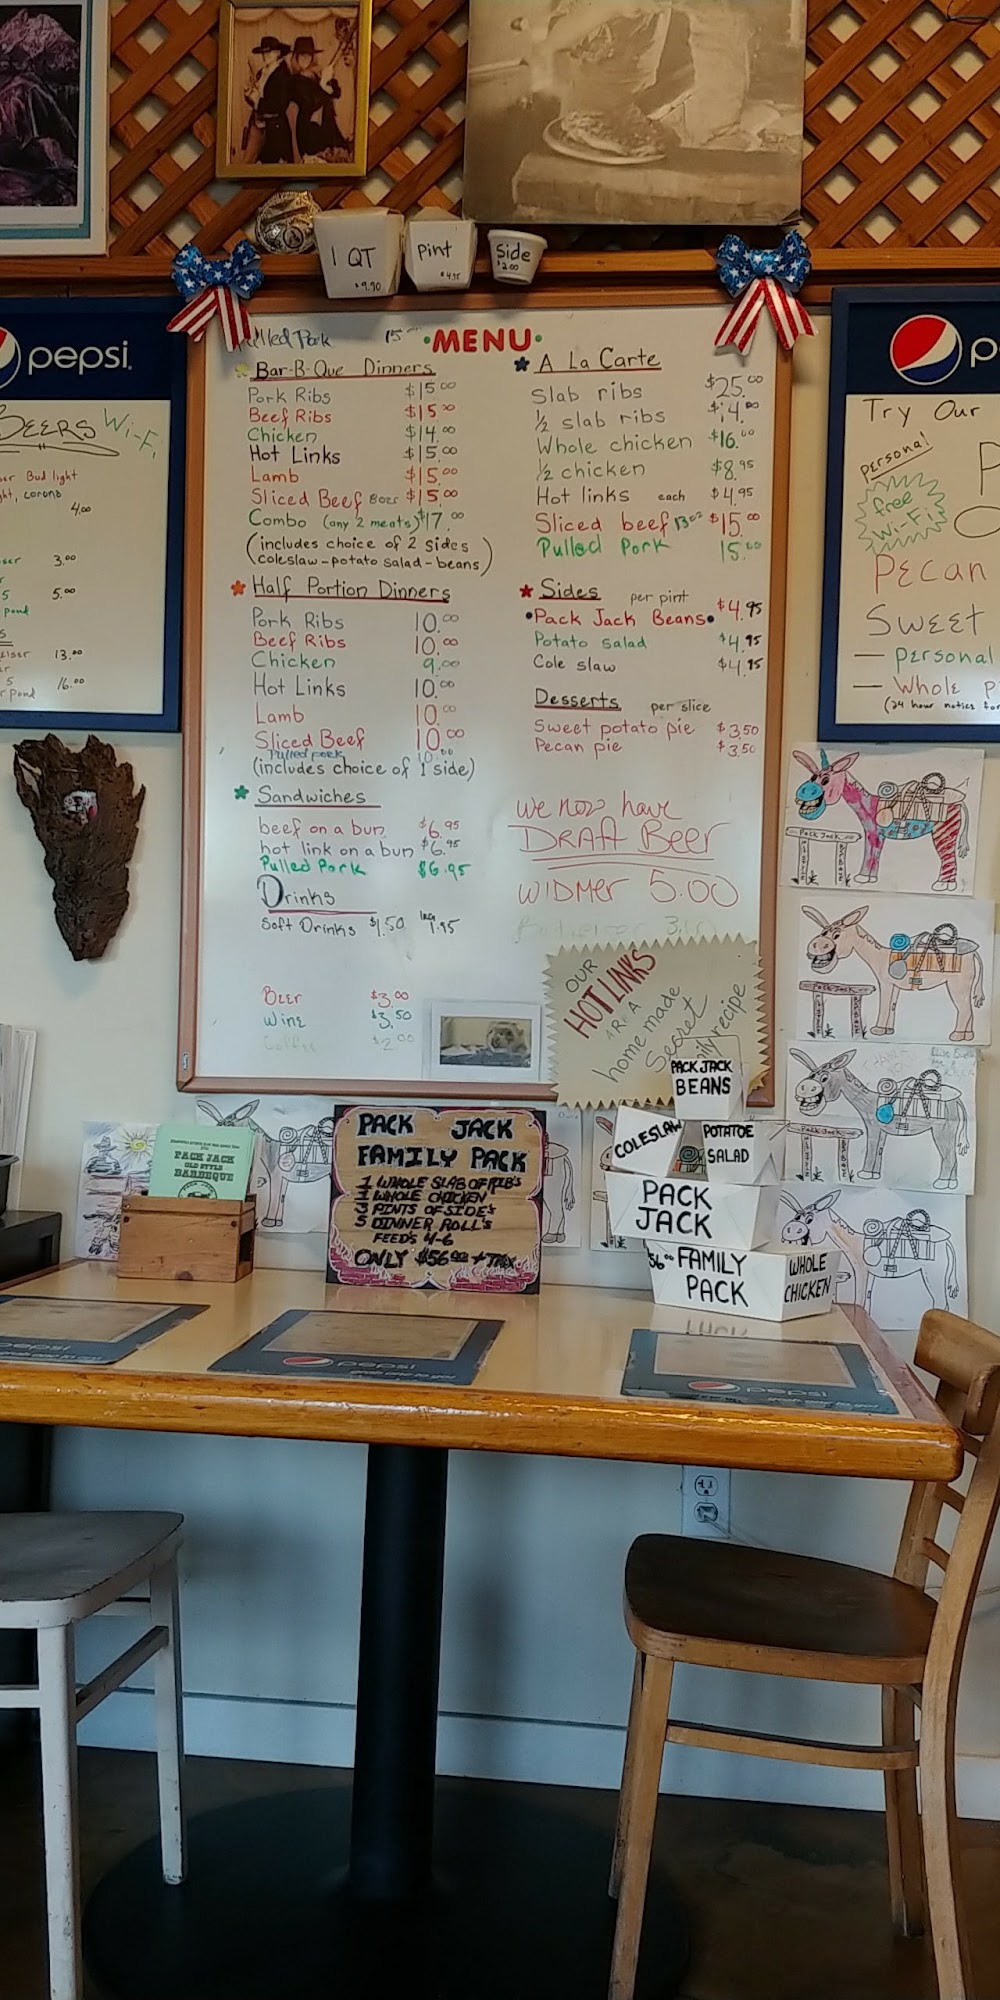 1 QT
$9.90
Pint
$4.95
Side
$2.00
Pulled Pork 15
MENU
Bar-B-Que Dinners
Pork Ribs $15.00
Beef Ribs $15.00
Chicken $14.00
Hot Links $15.00
Lamb $15.00
Sliced Beef 8oz $15.00
Combo (any 2 meats) $17.00
(includes choice of 2 sides
coleslaw-potato salad-beans)
Half Portion Dinners
Pork Ribs 10.00
Beef Ribs 10.00
Chicken 9.00
Hot Links 10.00
Lamb 10.00
Sliced Beef 10.00
Pulled pork 10.00
(includes choice of 1 side)
Sandwiches
beef on a bun $6.95
hot link on a bun $6.95
Pulled Pork $6.95
Drinks
Soft Drinks $1.50 1.95
Beer $3.00
Wine $3.50
Coffee $2.00
A La Carte
Slab ribs $25.00
½ slab ribs $14.00
Whole chicken $16.00
½ chicken $8.95
Hot links each $4.95
Sliced beef 13oz $15.00
Pulled Pork 15.00
Sides per pint
Pack Jack Beans $4.95
Potato salad $4.95
Cole slaw $4.95
Desserts per slice
Sweet potato pie $3.50
Pecan pie $3.50
we now have
Draft Beer
Widmer 5.00
Budweiser
OUR
HOT LINKS
ARE A
home made
Secret
family recipe
pepsi
BEERS Wi-Fi
Bud light
corona
4.00
3.00
5.00
13.00
16.00
Try Our
Personal
free
Wi-Fi
Pecan
Sweet
- personal
- Whole
(24 hour notice for
PACK JACK
OLD STYLE
BARBEQUE
PACK JACK
FAMILY PACK
1 WHOLE SLAB OF RIB'S
1 WHOLE CHICKEN
3 PINTS OF SIDE'S
5 DINNER ROLL'S
FEED'S 4-6
ONLY $56.00 + TAX
PACK JACK
BEANS
COLESLAW
POTATOE
SALAD
PACK
JACK
56.00 FAMILY
PACK
WHOLE
CHICKEN
Pack Jack
Pack Jack
Pack Jack
pepsi
pepsi
pepsi